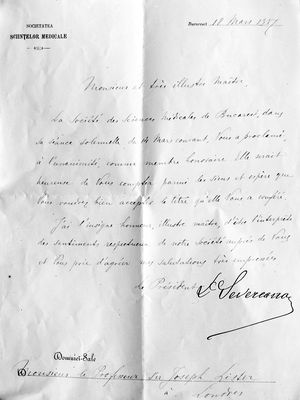 SOCIETATEA
SCIINȚELOR MEDICALE
Bucuresci 18 Mars 1887
Monsieur et très illustre Maître,
La Société des Sciences médicales de Bucarest, dans
sa séance solennelle du 14 Mars courant, Vous a proclamé,
à l'unanimité, comme membre honoraire. Elle serait
heureuse de Vous compter parmi les siens et espère que
Vous voudrez bien accepter le titre qu'elle Vous a conféré.
J'ai l'insigne honneur, illustre maître, d'être l'interprète
des sentiments respectueux de notre société auprès de Vous
et Vous prie d'agréer mes salutations très empressées
Le Président Dr Severeano
Domniei-Sale
Monsieur le Professeur Sir Joseph Lister
à Londres